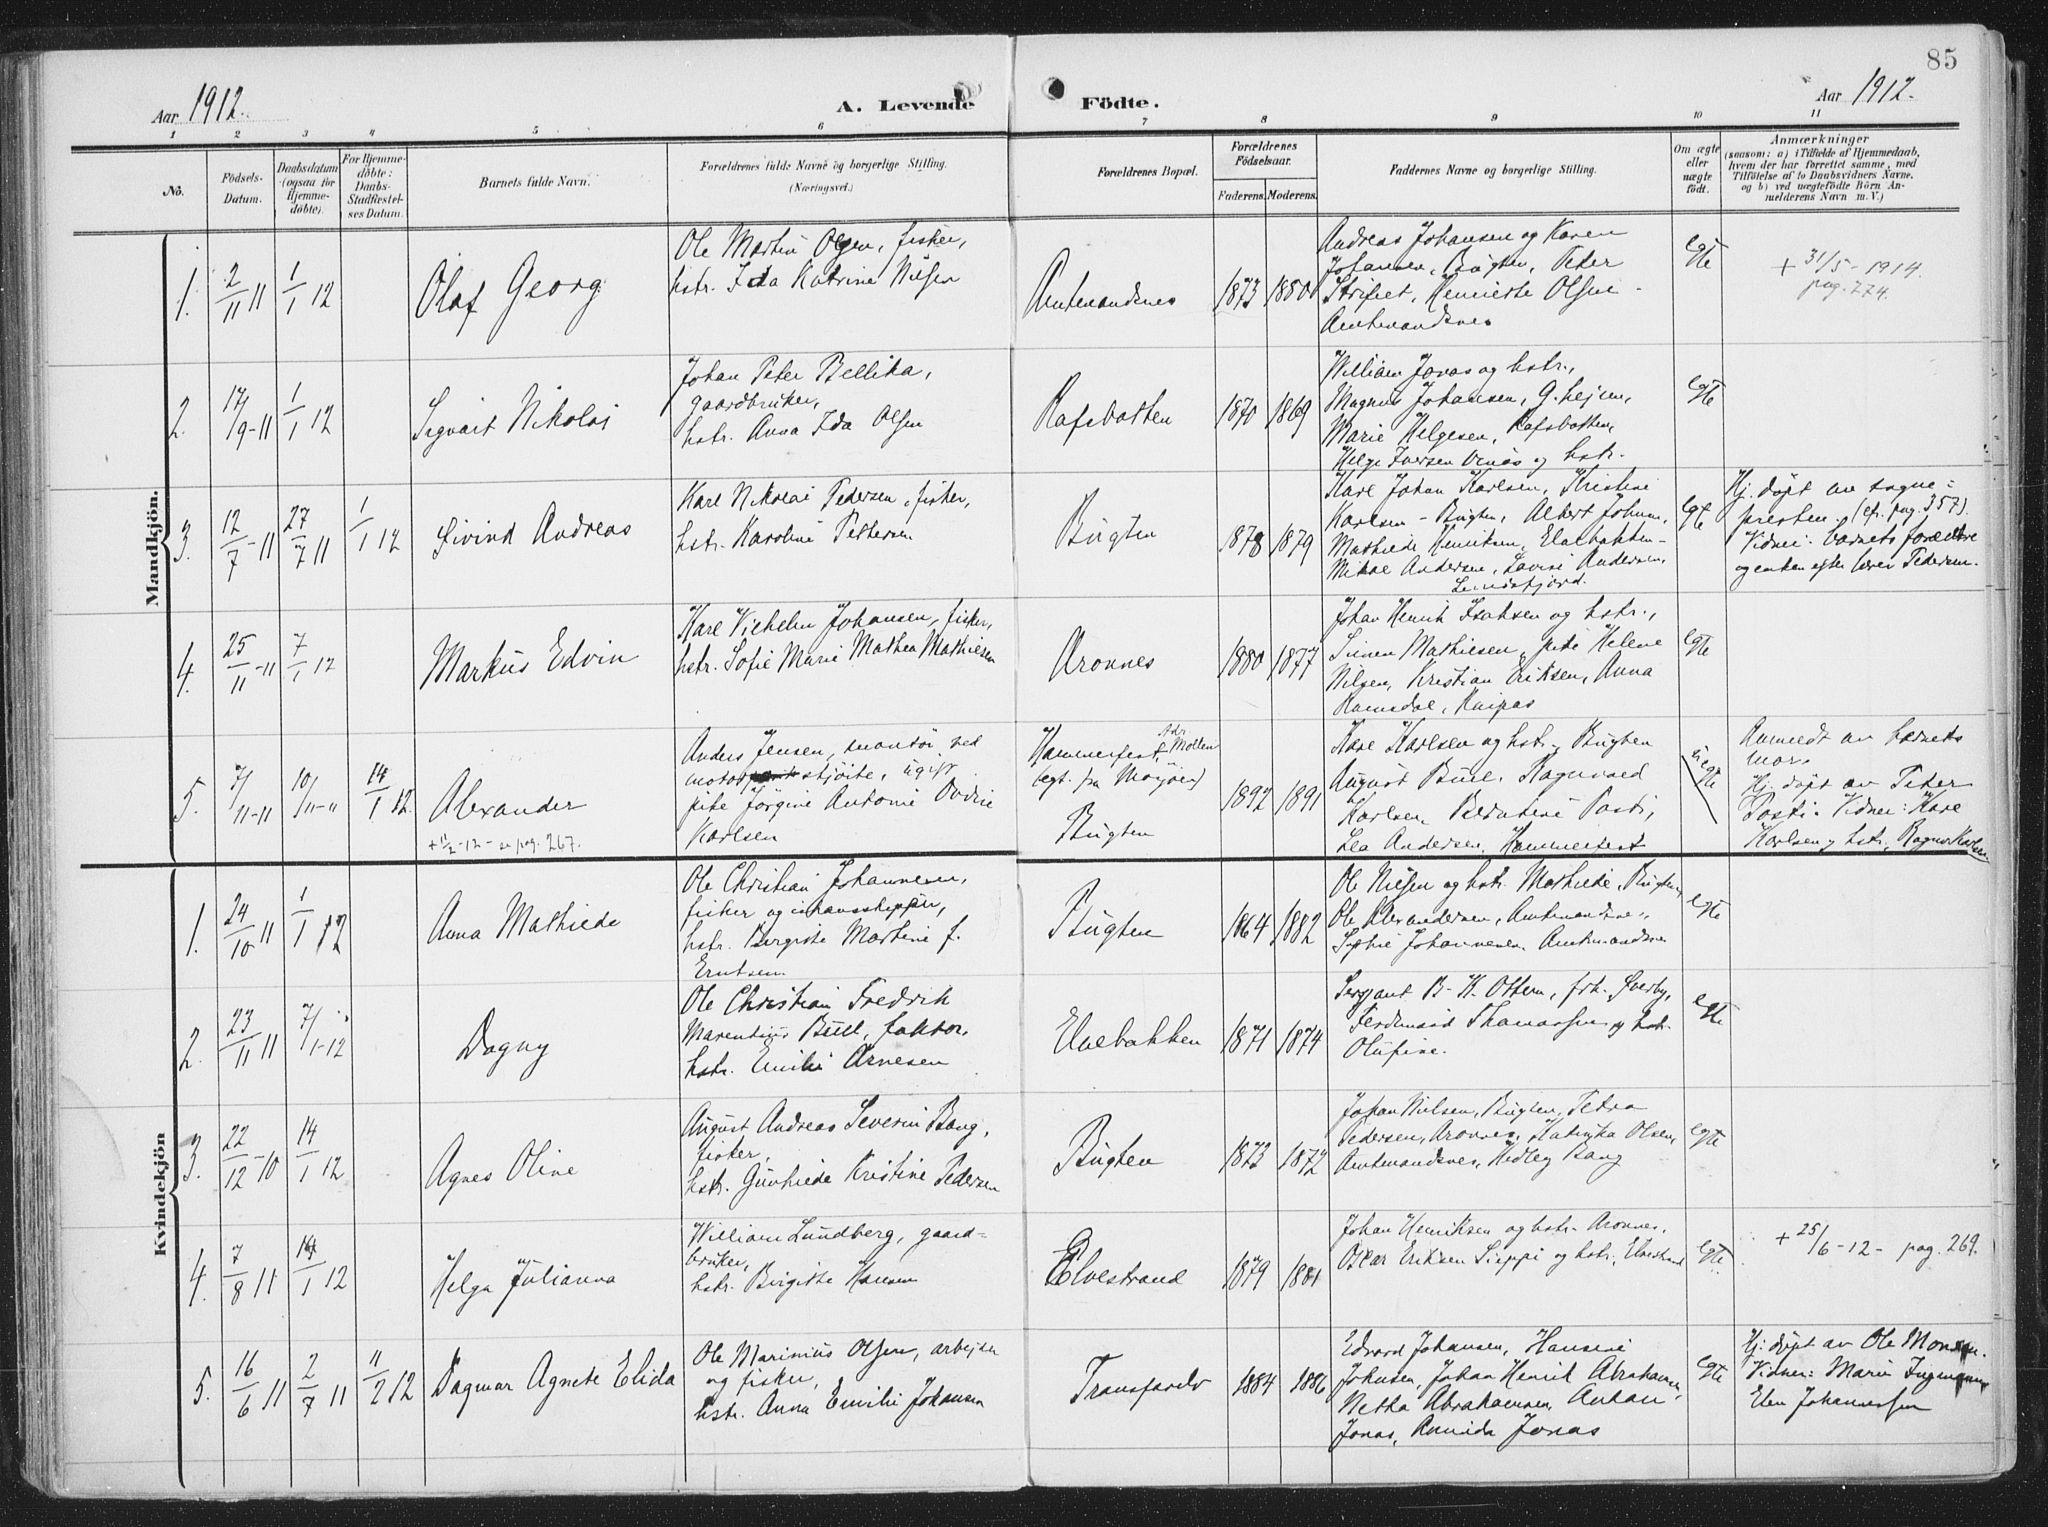 85
Aar 1912.
A. Levende Födte.
Aar 1912.
1 2 3 4 5 6 7 8 9 10 11
No.
Födsels-
Datum.
Daabsdatum
(ogsaa for
Hjemme-
döbte).
For Hjemme-
döbte:
Daabs-
Stadfæstel-
ses Datum.
Barnets fulde Navn.
Forældrenes fulde Navne og borgerlige Stilling.
(Næringsvei.)
Forældrenes Bopæl.
Forældrenes
Födselsaar.
Faderens. Moderens.
Faddernes Navne og borgerlige Stilling.
Om ægte
eller
uægte
født.
Anmærkninger
(saasom: a) i Tilfælde af Hjemmedaab,
hvem der har forrettet samme, med
Tilföielse af to Daabsvidners Navne,
og b) ved uægtefödte Börn An-
melderens Navn m. V.)
Mandkjön.
1.
2/11 11
1/1 12
Olaf Georg
Ole Martin Olsen, fisker,
hstr. Ida Katrine Nilsen
Amtmandsnes
1873 1880
Andreas Johansen og Karen
Johansen, Bugten, Peter
Strifeet, Henriette Olsen
Amtmandsnes
egte
+ 31/5 - 1914.
pag. 274.
2.
17/9-11
1/1 12
Sigvart Nikolai
Johan Peter Bellika,
gaardbruker,
hstr. Anna Ida Olsen
Rafsbotten
1870 1869
William Jonas og hstr.,
Magnus Johansen, G.hejm,
Marie Helgesen, Rafsbotten,
Helge Iversen og hstr.
egte
3.
12/7-11
27/7 11
1/1 12
Eivind Andreas
Karl Nikolai Pedersen, fisker,
hstr. Karoline Pettersen
Bugten
1878 1879
Karl Johan Karlsen, Kristine
Karlsen - Bugten, Albert Johnsen,
Mathilde Henriksen, Elvebakken -
Mikal Andersen, Lovise Andersen,
egte
Hj. döpt av sogne-
presten. (cfr. pag. 357).
Vidner: barnets forældre
og enken efter lærer Pedersen.
4.
25/11-11
7/1 12
Markus Edvin
Karl Vilhelm Johansen, fisker,
hstr. Sofie Marie Mathea Mathisen
Aronnes
1880 1877
Johan Henrik Isaksen og hstr.,
Simen Mathiesen, pike Helene
Nilsen, Kristian Eriksen, Anna
Ramsdal, Kaipas
egte
5.
7/11-11
10/11-11
14/1 12.
Alexander
+ 11/2-12 - se pag. 267.
Anders Jensen, montör ved
motor skjöite, ugift
pike Jörgine Antonie Ovidie
Karlsen
Hammerfest, Adr. Mollen
(egt. fra Mosjöen)
Bugten
1892 1891
Karl Karlsen og hstr. Bugten
August Bull, Ragnvald
Karlsen Posti,
Lea Andersen, Hammerfest
uegte
Anmeldt av barnets
mor.
Hj. döpt av Peter
Posti. Vidner: Karl
Karlsen og hstr., Ragnv Karlsen
Kvindekjön
1.
24/10 11
1/1 12
Anna Mathilde
Ole Christian Johannesen,
fisker og ishavsskipper,
hstr. Bergitte Martine f.
Erntsen
Bugten
1864 1882
Ole Nilsen og hstr. Mathilde, Bugten,
Ole Alexandersen, Amtmandsnes,
Sophie Johannesen, Amtmandsnes
egte
2.
23/11 11
7/1-12
Dagny
Ole Christian Fredrik
Marentius Bull, faktor,
hstr. Emilie Arnesen
Elvebakken
1871 1874
Sergeant B. H. Ottem, frk. Sverby,
Ferdinand Thomassen og hstr.
Olufine.
egte
3.
22/12-10
14/1 12
Agnes Oline
August Andreas Severin Bang,
fisker,
hstr. Gunhilde Kristine Pedersen
Bugten
1873 1872
Johan Nilsen, Bugten, Petra
Pedersen, Aronnes, Katinka Olsen,
Amtmandsnes, Hedley Bang
egte
4.
7/8 11
14/1 12
Helga Julianna
William Lundberg, gaard-
bruker,
hstr. Birgitte Hansen
Elvestrand
1879 1881
Johan Henriksen og hstr. Aronnes.
Oskar Eriksen Sieppi og hstr., Elvestrand
egte.
+ 25/6-12- pag. 269.
5.
16/6 11
2/7 11
11/2 12
Dagmar Agnete Elida
Ole Marinius Olsen, arbejder
og fisker,
hstr. Anna Emilie Johansen
Transfarelv
1884 1886
Edvard Johansen, Hansine
Johnsen, Johan Henrik Abrahamsen,
Netha Abrahamsen, Anton
Jonas, Jonas
egte
Hj. döpt av Ole Monsen.
Vidner: Marie
Elen Johannessen